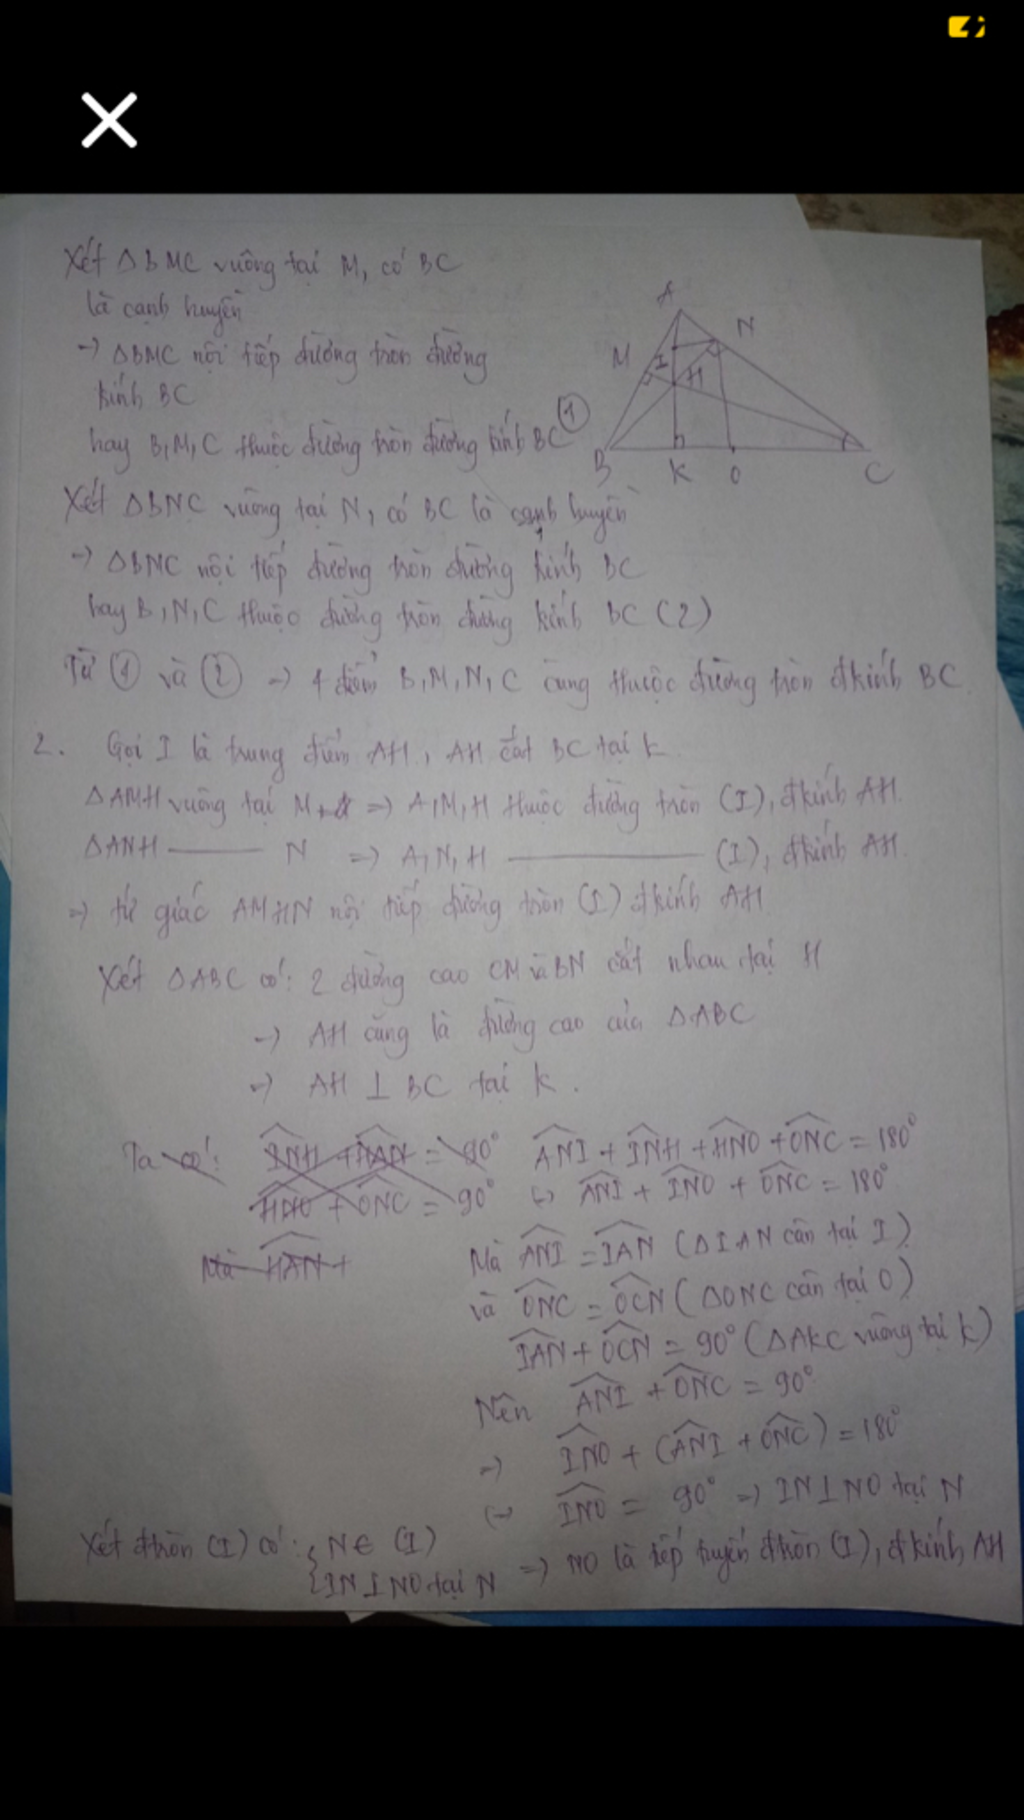 Xét ΔBMC vuông tại M, có BC
là cạnh huyền
→ ΔBMC nội tiếp đường tròn đường
kính BC
hay B,M,C thuộc đường tròn đường kính BC ①
A
N
M
I
H
B
K
O
C
Xét ΔBNC vuông tại N, có BC là cạnh huyền
→ ΔBNC nội tiếp đường tròn đường kính BC
hay B,N,C thuộc đường tròn đường kính BC (2)
Từ ① và ② → 4 điểm B,M,N,C cùng thuộc đường tròn đkính BC.
2. Gọi I là trung điểm AH, AH cắt BC tại K.
ΔAMH vuông tại M => A,M,H thuộc đường tròn (I), đkính AH.
ΔANH —— N => A,N,H —— (I), đkính AH.
=> tứ giác AMHN nội tiếp đường tròn (I) đkính AH
Xét ΔABC có: 2 đường cao CM và BN cắt nhau tại H
→ AH cũng là đường cao của ΔABC
→ AH ⊥ BC tại K.
Ta có: INH + HAN = 90°
HNO + ONC = 90°
Mà HAN +
ANI + INH + HNO + ONC = 180°
(-) ANI + INO + ONC = 180°
Mà ANI = IAN (ΔIAN cân tại I)
và ONC = OCN (ΔONC cân tại O)
IAN + OCN = 90° (ΔAKC vuông tại K)
Nên ANI + ONC = 90°
=> INO + (ANI + ONC) = 180°
(-) INO = 90° => IN⊥NO tại N
Xét đtròn (I) có: { N∈ (I)
IN⊥NO tại N => NO là tiếp tuyến đtròn (I), đkính AH